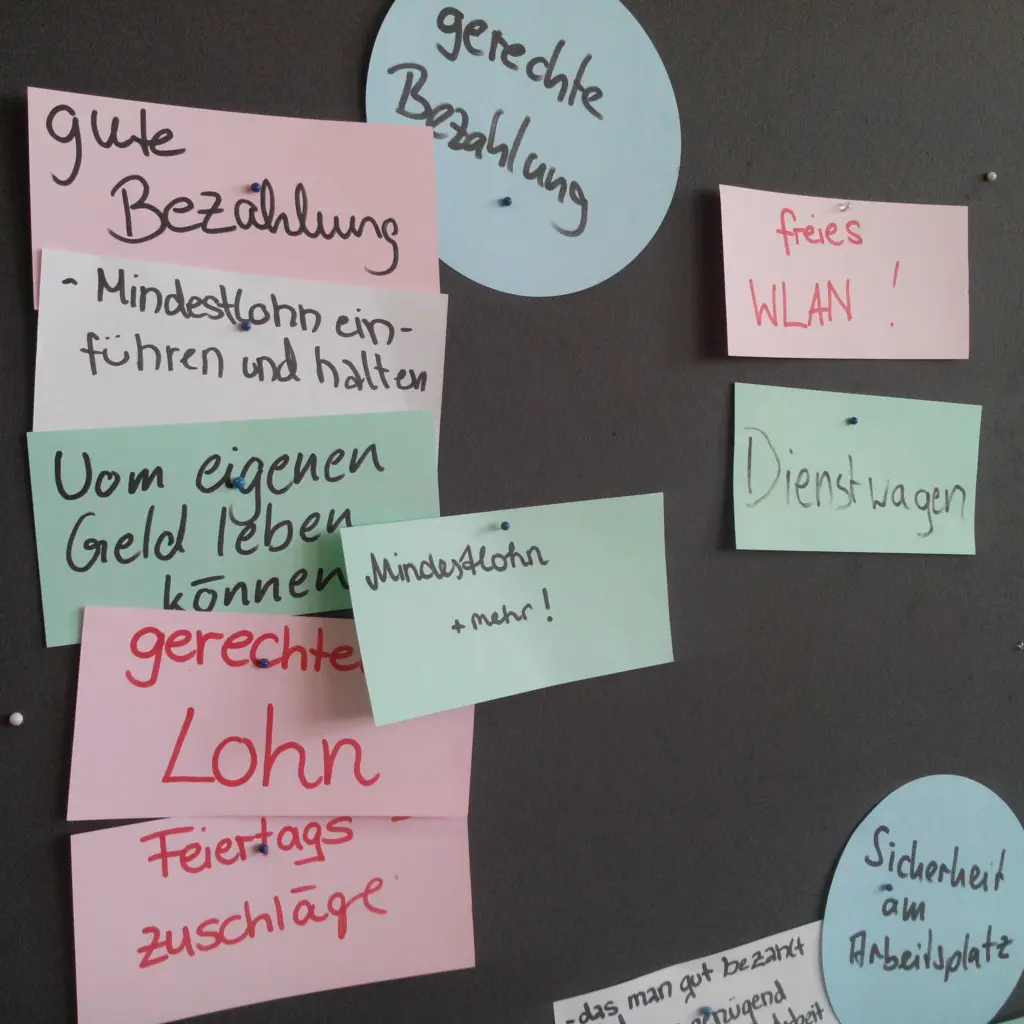 gerechte
Bezahlung
gute
Bezahlung
- Mindestlohn ein-
führen und halten
Vom eigenen
Geld leben
können
Mindestlohn
+ mehr!
gerechte
Lohn
Feiertags-
zuschläge
freies
WLAN!
Dienstwagen
Sicherheit
am
Arbeitsplatz
- das man gut bezahlt